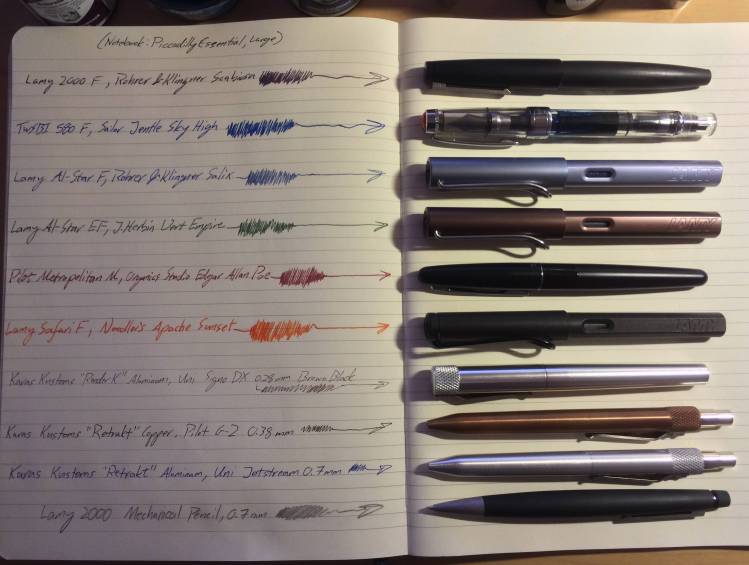 (Notebook: Piccadilly Essential, Large)
Lamy 2000 F, Rohrer & Klingner Scabiosa
TWSBI 580 F, Sailor Jentle Sky High
Lamy Al-Star F, Rohrer & Klingner Salix
Lamy Al-Star EF, J. Herbin Vert Empire
Pilot Metropolitan M, Organics Studio Edgar Allan Poe
Lamy Safari F, Noodler's Apache Sunset
Karas Kustoms "Render K" Aluminum, Uni Signo DX 0.28 mm Brown Black
Karas Kustoms "Retrakt" Copper, Pilot G-2 0.38 mm
Karas Kustoms "Retrakt" Aluminum, Uni Jetstream 0.7 mm
Lamy 2000 Mechanical Pencil, 0.7 mm
LAMY
LAMY
LAMY